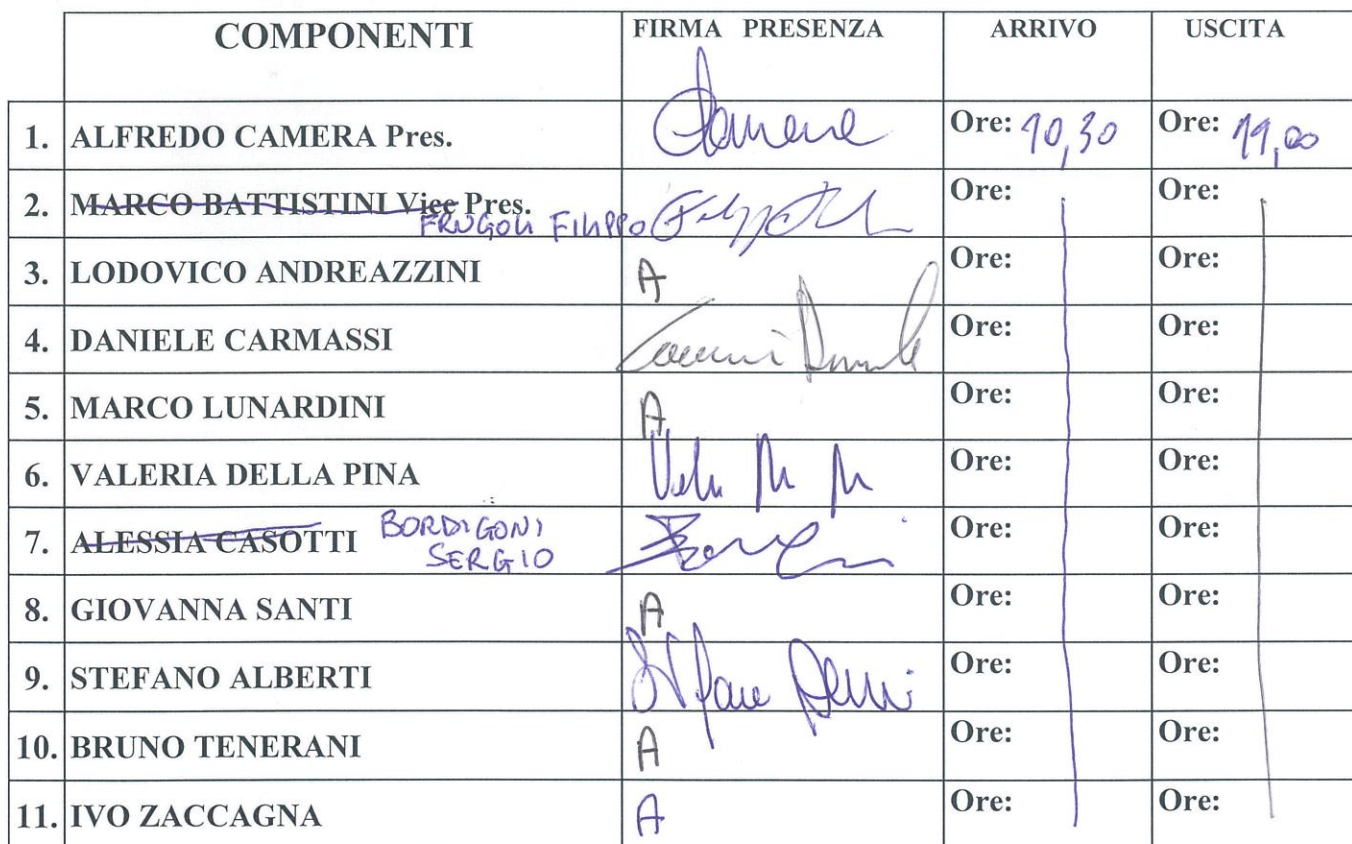 COMPONENTI FIRMA PRESENZA ARRIVO USCITA
1. ALFREDO CAMERA Pres. Camera Ore: 10,30 Ore: 11,00
2. MARCO BATTISTINI Vice Pres. Ore: Ore:
FRUGOLI FILIPPO
3. LODOVICO ANDREAZZINI A Ore: Ore:
4. DANIELE CARMASSI Ore: Ore:
5. MARCO LUNARDINI A Ore: Ore:
6. VALERIA DELLA PINA Ore: Ore:
7. ALESSIA CASOTTI BORDIGONI Ore: Ore:
SERGIO
8. GIOVANNA SANTI A Ore: Ore:
9. STEFANO ALBERTI Ore: Ore:
10. BRUNO TENERANI A Ore: Ore:
11. IVO ZACCAGNA A Ore: Ore: